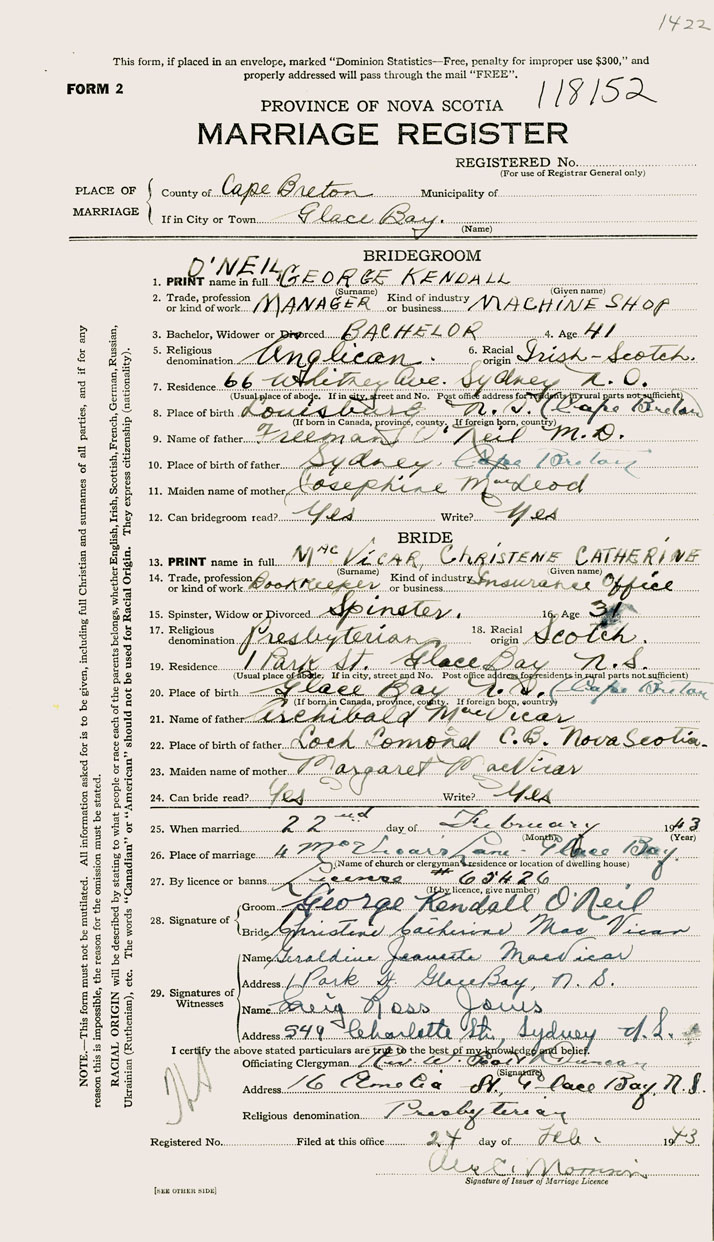 1422
This form, if placed in an envelope, marked "Dominion Statistics—Free, penalty for improper use $300," and
properly addressed will pass through the mail "FREE".
FORM 2
118152
PROVINCE OF NOVA SCOTIA
MARRIAGE REGISTER
REGISTERED No.
(For use of Registrar General only)
PLACE OF MARRIAGE
County of Cape Breton Municipality of
If in City or Town Glace Bay.
(Name)
BRIDEGROOM
1. PRINT name in full O'NEIL, GEORGE KENDALL
(Surname) (Given name)
2. Trade, profession or kind of work MANAGER Kind of industry or business MACHINE SHOP
3. Bachelor, Widower or Divorced BACHELOR 4. Age 41
5. Religious denomination Anglican. 6. Racial origin Irish-Scotch.
7. Residence 66 Whitney Ave. Sydney N.S.
(Usual place of abode. If in city, street and No. Post office address for residents in rural parts not sufficient)
8. Place of birth Louisburg N.S. (Cape Breton)
(If born in Canada, province, county. If foreign born, country)
9. Name of father Freeman O'Neil M.D.
10. Place of birth of father Sydney, Cape Breton
11. Maiden name of mother Josephine MacLeod
12. Can bridegroom read? Yes Write? Yes
BRIDE
13. PRINT name in full MacVICAR, CHRISTENE CATHERINE
(Surname) (Given name)
14. Trade, profession or kind of work Bookkeeper Kind of industry or business Insurance Office
15. Spinster, Widow or Divorced Spinster. 16. Age 31
17. Religious denomination Presbyterian 18. Racial origin Scotch.
19. Residence 1 Park St. Glace Bay N.S.
(Usual place of abode. If in city, street and No. Post office address for residents in rural parts not sufficient)
20. Place of birth Glace Bay N.S. (Cape Breton
(If born in Canada, province, county. If foreign born, country)
21. Name of father Archibald MacVicar
22. Place of birth of father Loch Lomond C.B. Nova Scotia.
23. Maiden name of mother Margaret MacVicar
24. Can bride read? Yes Write? Yes
25. When married 22nd day of February 1943
(Month) (Year)
26. Place of marriage 4 McVicar's Lane - Glace Bay.
(Name of church or clergyman's residence or location of dwelling house)
27. By licence or banns License # 65426
(If by licence, give number)
28. Signature of
Groom George Kendall O'Neil
Bride Christine Catherine MacVicar
29. Signatures of Witnesses
Name Geraldine Jeanette MacVicar
Address 1 Park St. Glace Bay, N.S.
Name Greig Ross Jones
Address 549 Charlotte St., Sydney N.S.
I certify the above stated particulars are true to the best of my knowledge and belief.
Officiating Clergyman Rev. Duncan
(Signature)
Address 16 Emelia St., Glace Bay, N.S.
Religious denomination Presbyterian
Registered No. Filed at this office 24 day of Feb. 1943
Morrison
Signature of Issuer of Marriage Licence
[SEE OTHER SIDE]
NOTE.—This form must not be mutilated. All information asked for is to be given, including full Christian and surnames of all parties, and if for any
reason this is impossible, the reason for the omission must be stated.
RACIAL ORIGIN will be described by stating to what people or race each of the parents belongs, whether English, Irish, Scottish, French, German, Russian,
Ukrainian (Ruthenian), etc. The words "Canadian" or "American" should not be used for Racial Origin. They express citizenship (nationality).